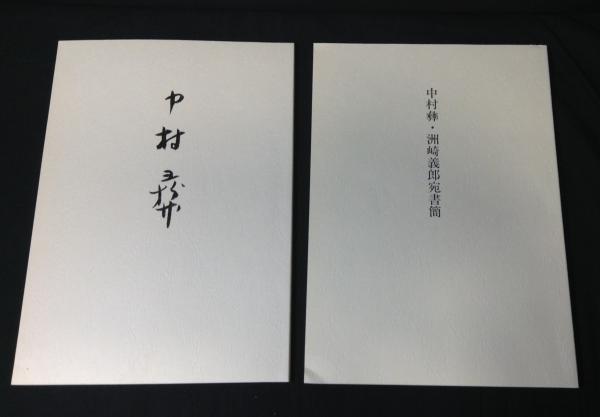 中村彝
中村彝・洲崎義郎宛書簡